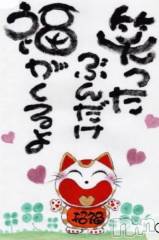 笑った
ぶんだけ
福が くるよ
招福